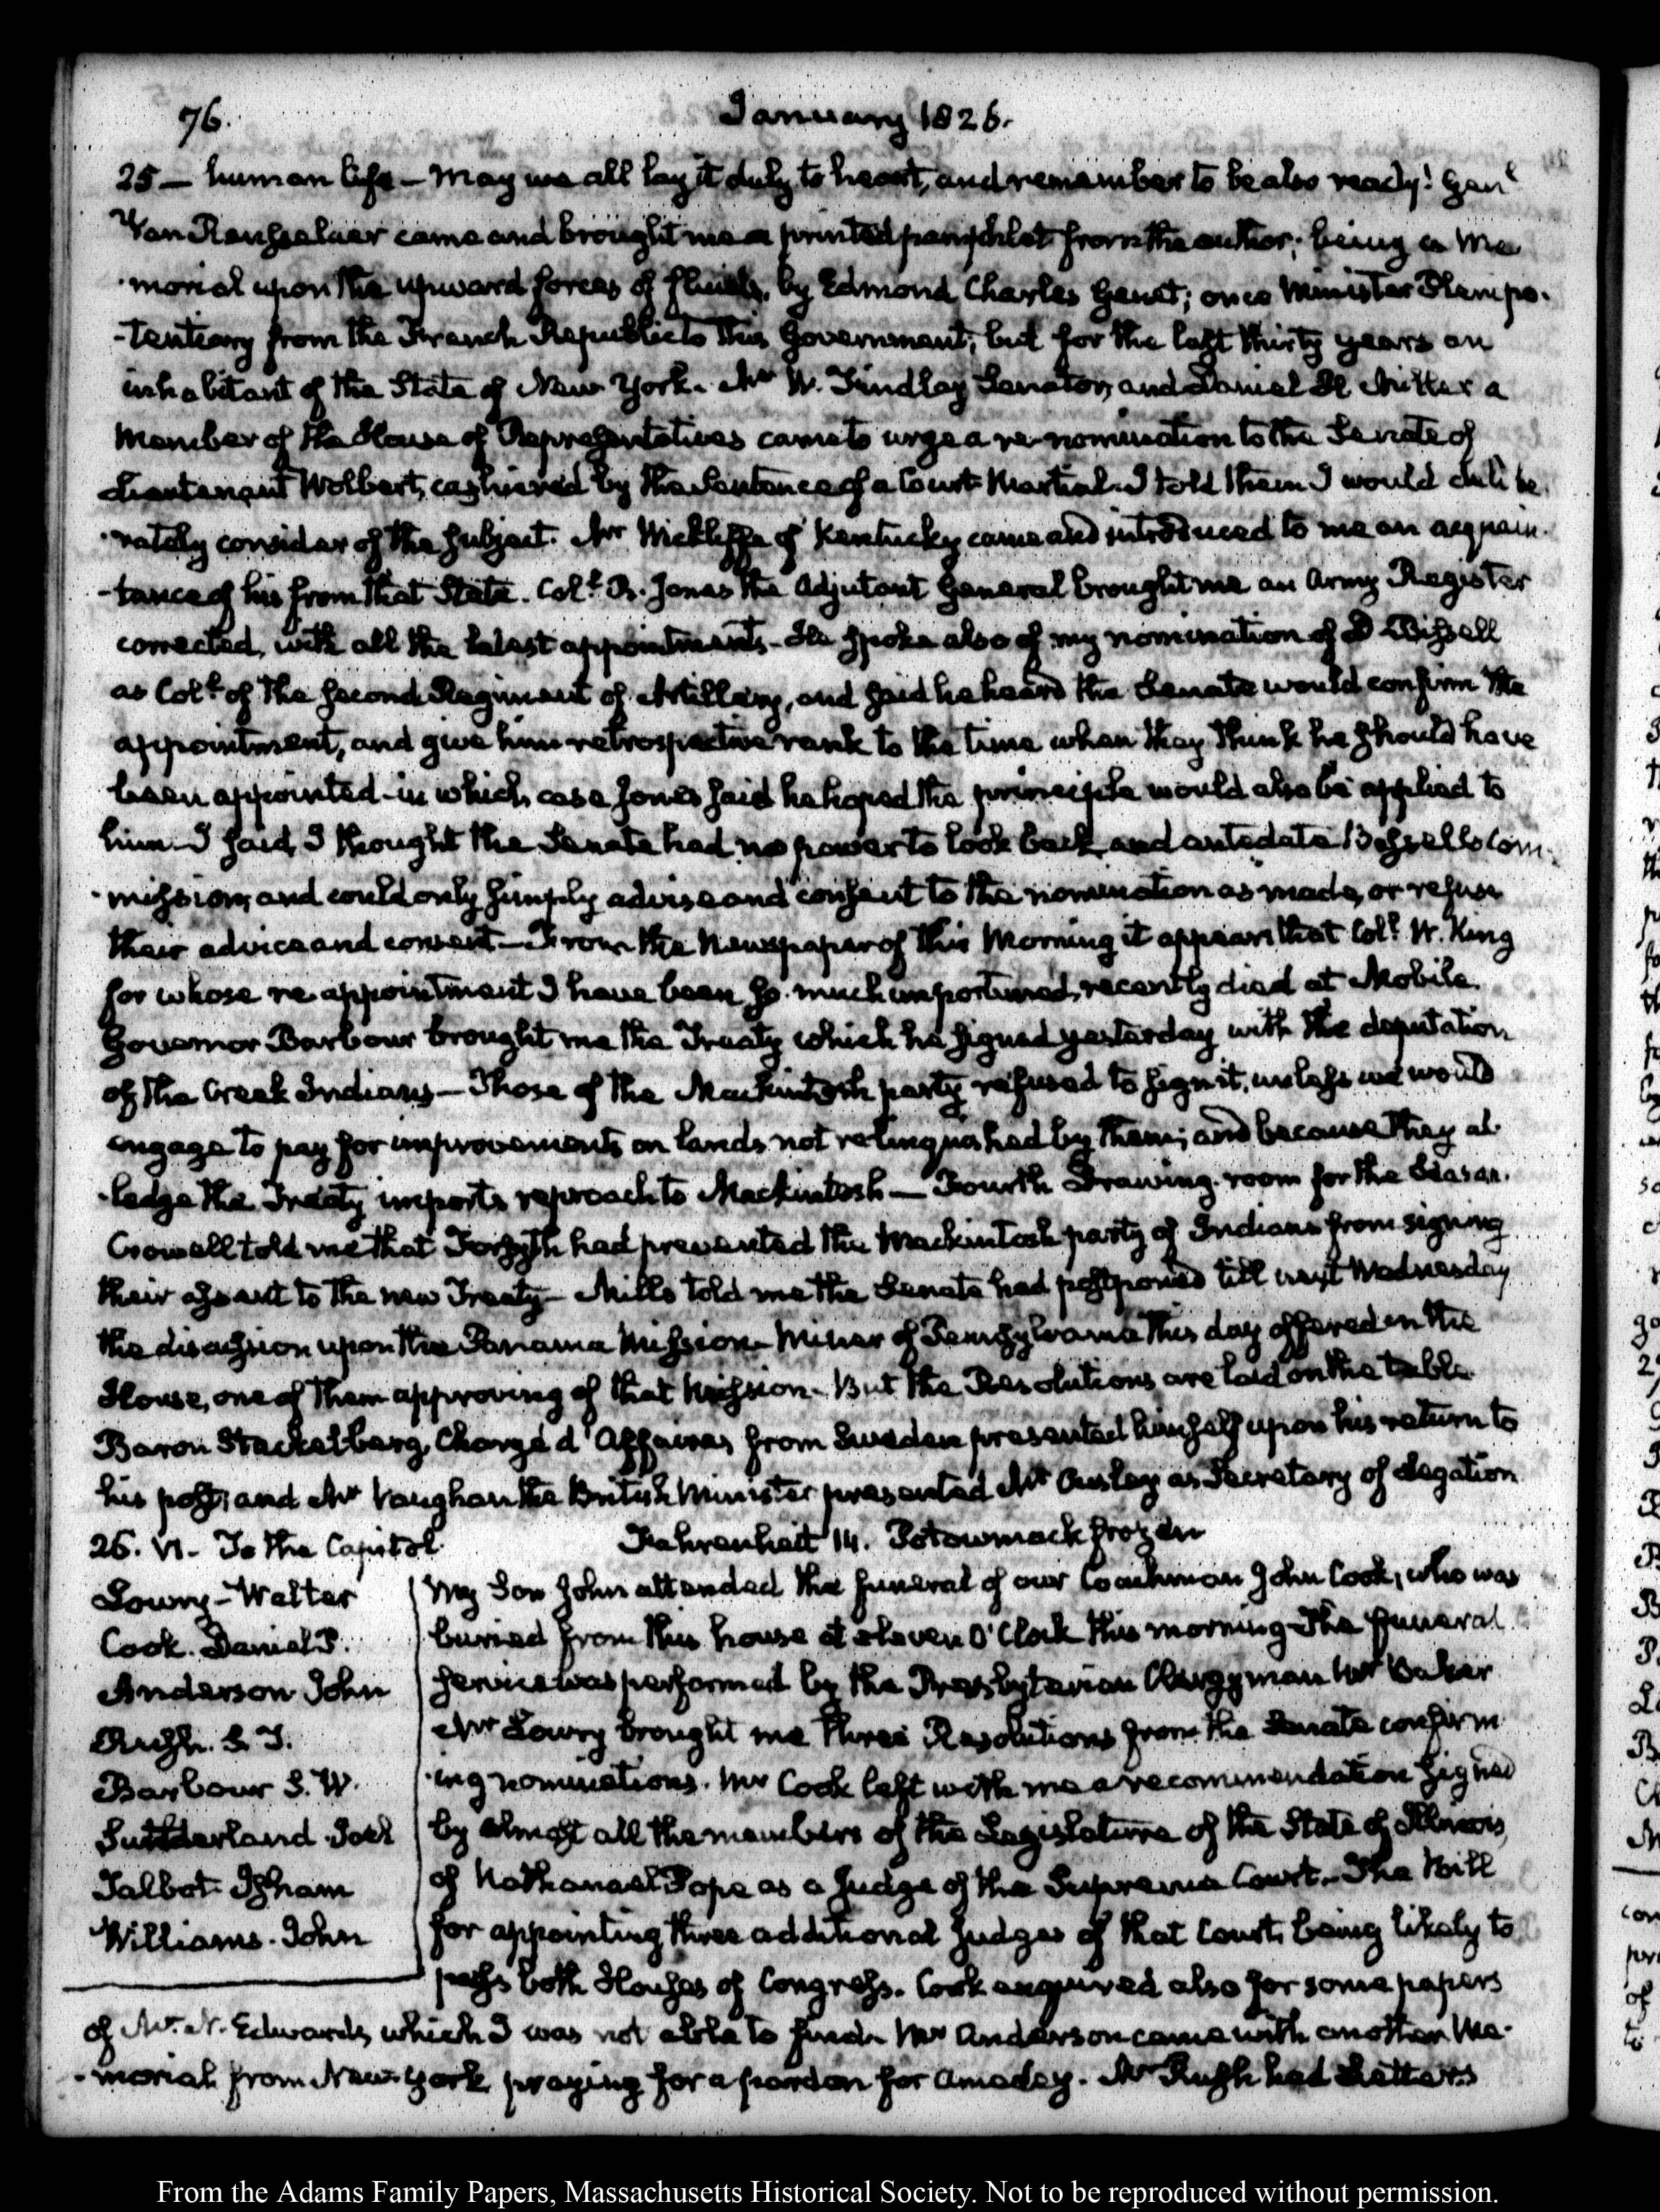 76.
January 1826.
25 — human life — May we all lay it duly to heart, and remember to be also ready! Genl
Van Rensselaer came and brought me a printed pamphlet from the author; being a Me
-morial upon the upward forces of fluids, by Edmond Charles Genet; once Minister Plenipo-
-tentiary from the French Republic to this Government; but for the last thirty years an
inhabitant of the State of New York. Mr W. Findlay Senator, and Daniel H Miller a
member of the House of Representatives came to urge a re-nomination to the Senate of
Lieutenant Wolbert, cashiered by the Sentence of a Court Martial. I told them I would delibe-
-rately consider of the subject. Mr Wickliffe of Kentucky came and introduced to me an acquain-
-tance of his from that State. Coll R. Jones the Adjutant General brought me an Army Register
corrected, with all the latest appointments. He spoke also of my nomination of D Bissell
as Coll of the second Regiment of Artillery, and said he heard the Senate would confirm the
appointment, and give him retrospective rank to the time when they think he should have
been appointed - in which case Jones said he hoped the principle would also be applied to
him. I said, I thought the Senate had no power to look back and antedate Bissells Com-
-mission; and could only simply advise and consent to the nomination as made, or refuse
their advice and consent — From the Newspaper of this Morning it appears that Coll W. King
for whose re-appointment I have been so much importuned, recently died at Mobile.
Governor Barbour brought me the Treaty which he signed yesterday with the deputation
of the Creek Indians — Those of the Mackintosh party refused to sign it, unless we would
engage to pay for improvements on lands not relinquished by them; and because they al-
-ledge the Treaty imports reproach to Mackintosh — Fourth Drawing-room for the Season.
Crowell told me that Forsyth had prevented the Mackintosh party of Indians from signing
their assent to the new Treaty — Mills told me the Senate had postponed till next Wednesday
the discussion upon the Panama Mission. Miner of Pennsylvania this day offered in the
House, one of them approving of that Mission. But the Resolutions are laid on the table
Baron Stackelberg, Chargé d'Affaires from Sweden presented himself upon his return to
his post; and Mr Vaughan the British Minister presented Mr Ousley as Secretary of Legation
26. VI. To the Capitol. Fahrenheit 14. Potowmack frozen
Lowry - Walter
Cook. Daniel P.
Anderson John
Rush. S. T.
Barbour S. W.
Sutherland Joel
Talbot Isham
Williams. John
My Son John attended the funeral of our Coachman John Cook, who was
buried from this house at eleven O'Clock this morning. The funeral
service was performed by the Presbyterian Clergyman Mr Baker
Mr Lowry brought me three Resolutions from the Senate confirm
-ing nominations. Mr Cook left with me a recommendation signed
by almost all the members of the Legislature of the State of Illinois,
of Nathanael Pope as a Judge of the Supreme Court. The Bill
for appointing three additional Judges of that Court being likely to
pass both Houses of Congress. Cook enquired also for some papers
of Mr. N. Edwards, which I was not able to find. Mr Anderson came with another Me-
-morial from New-York praying for a pardon for Amadey. Mr Rush had Letters
From the Adams Family Papers, Massachusetts Historical Society. Not to be reproduced without permission.